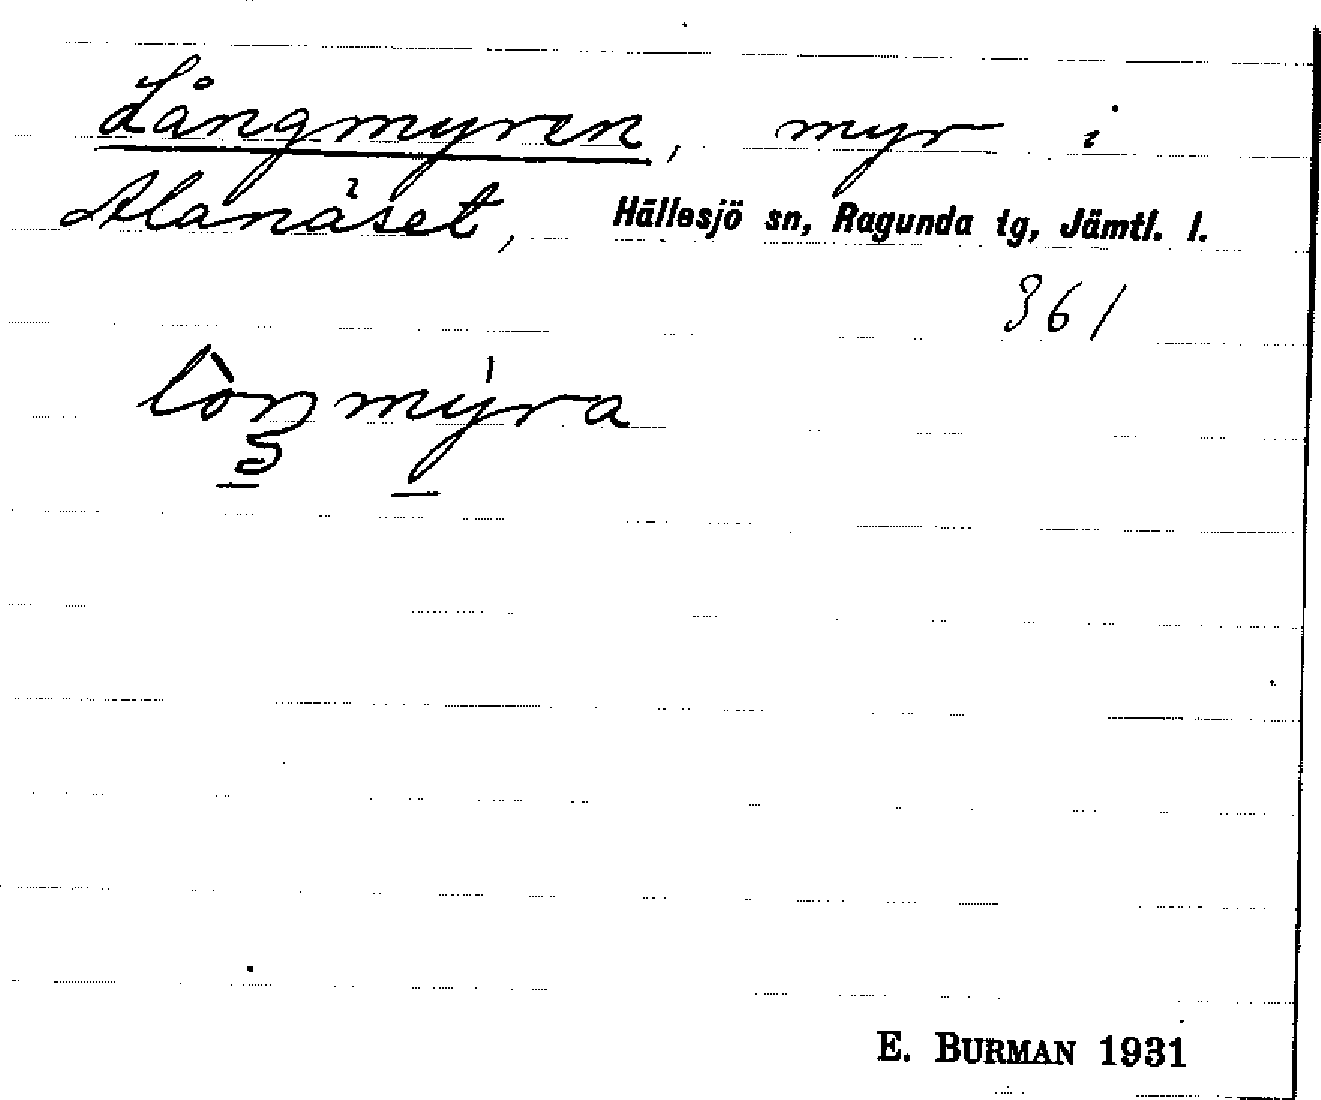 Långmyren, myr i
Alanäset, Hällesjö sn, Ragunda tg, Jämtl. l.
361
lòŋmýra
E. BURMAN 1931